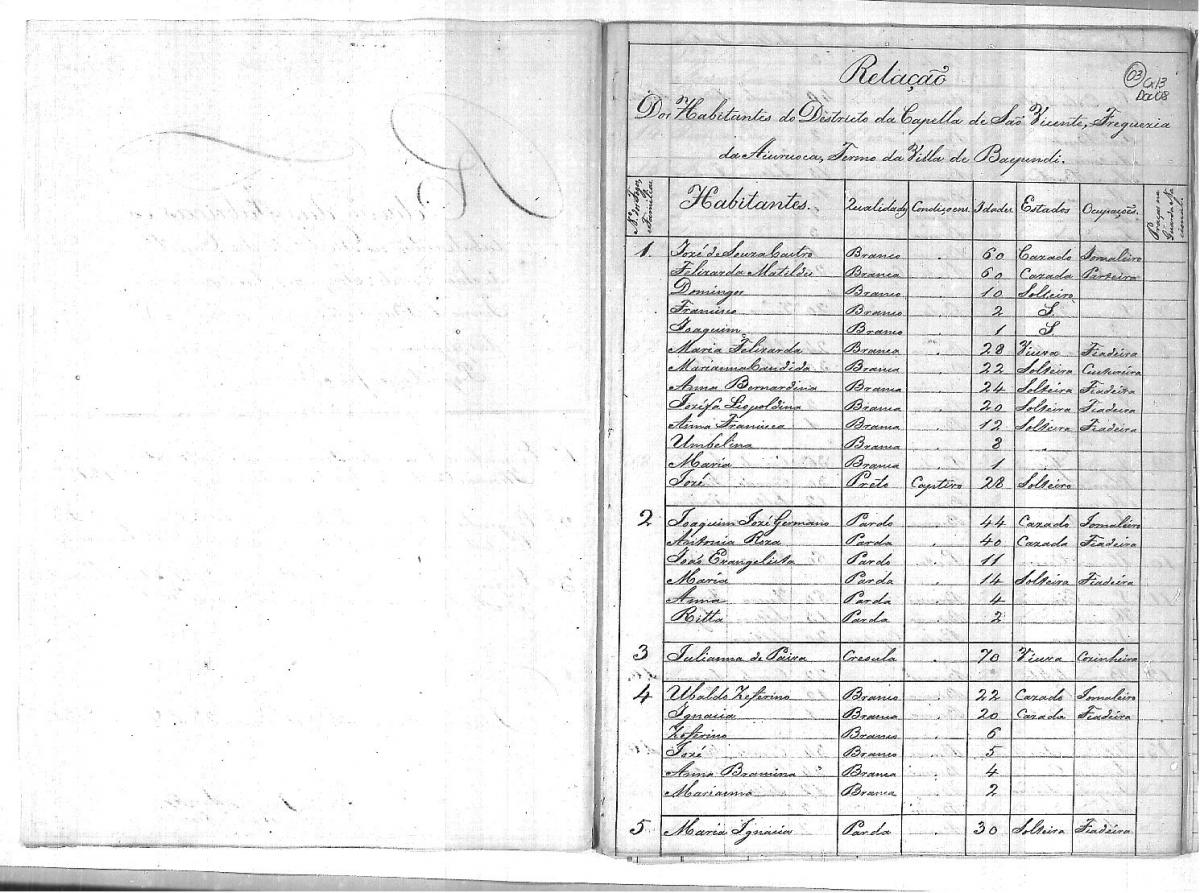 03
Cx13
Doc08
Relação
Dos Habitantes do Districto da Capella de São Vicente, Freguezia
da Aiuruoca, Termo da Villa de Baependi.
Nº de Fogos, Familias Habitantes. Qualidades Condiçoens. Idades Estados Ocupações. Praças na Guarda Nacional.
1. José de Souza Castro Branco . 60 Cazado Jornaleiro
Felizarda Matilde Branca . 60 Cazada Parteira
Domingos Branco . 10 Solteiro
Francisco Branco . 2 S.
Joaquim Branco . 1 S.
Maria Felizarda Branca . 28 Viuva Fiadeira
Marianna Candida Branca . 22 Solteira Custureira
Anna Bernardina Branca . 24 Solteira Fiadeira
Jozéfa Leopoldina Branca . 20 Solteira Fiadeira
Anna Francisca Branca . 12 Solteira Fiadeira
Umbelina Branca . 8 "
Maria Branca . 1 .
José Preto Captivo 28 Solteiro
2 Joaquim José Germano Pardo . 44 Cazado Jornaleiro
Antonia Roza Parda . 40 Cazada Fiadeira
João Evangelista Pardo . 11
Maria Parda . 14 Solteira Fiadeira
Anna Parda . 4
Ritta Parda . 2
3 Julianna de Paiva Creoula . 70 Viuva Cozinheira
4 Ubaldo Zeferino Branco . 22 Cazado Jornaleiro
Ignacia Branca . 20 Cazada Fiadeira
Zeferino Branco . 6
José Branco . 5
Anna Branca . 4
Marianna Branca . 2
5 Maria Ignacia Parda . 30 Solteira Fiadeira